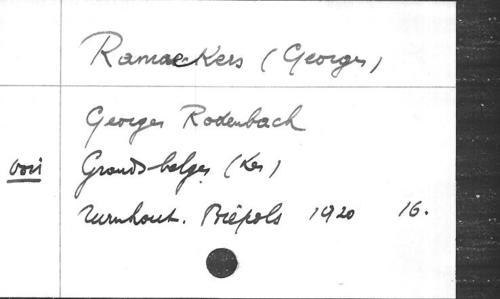 Ramaekers (Georges)
Georges Rodenbach
voir Grands belges (Les)
Turnhout. Brépols 1920 16.